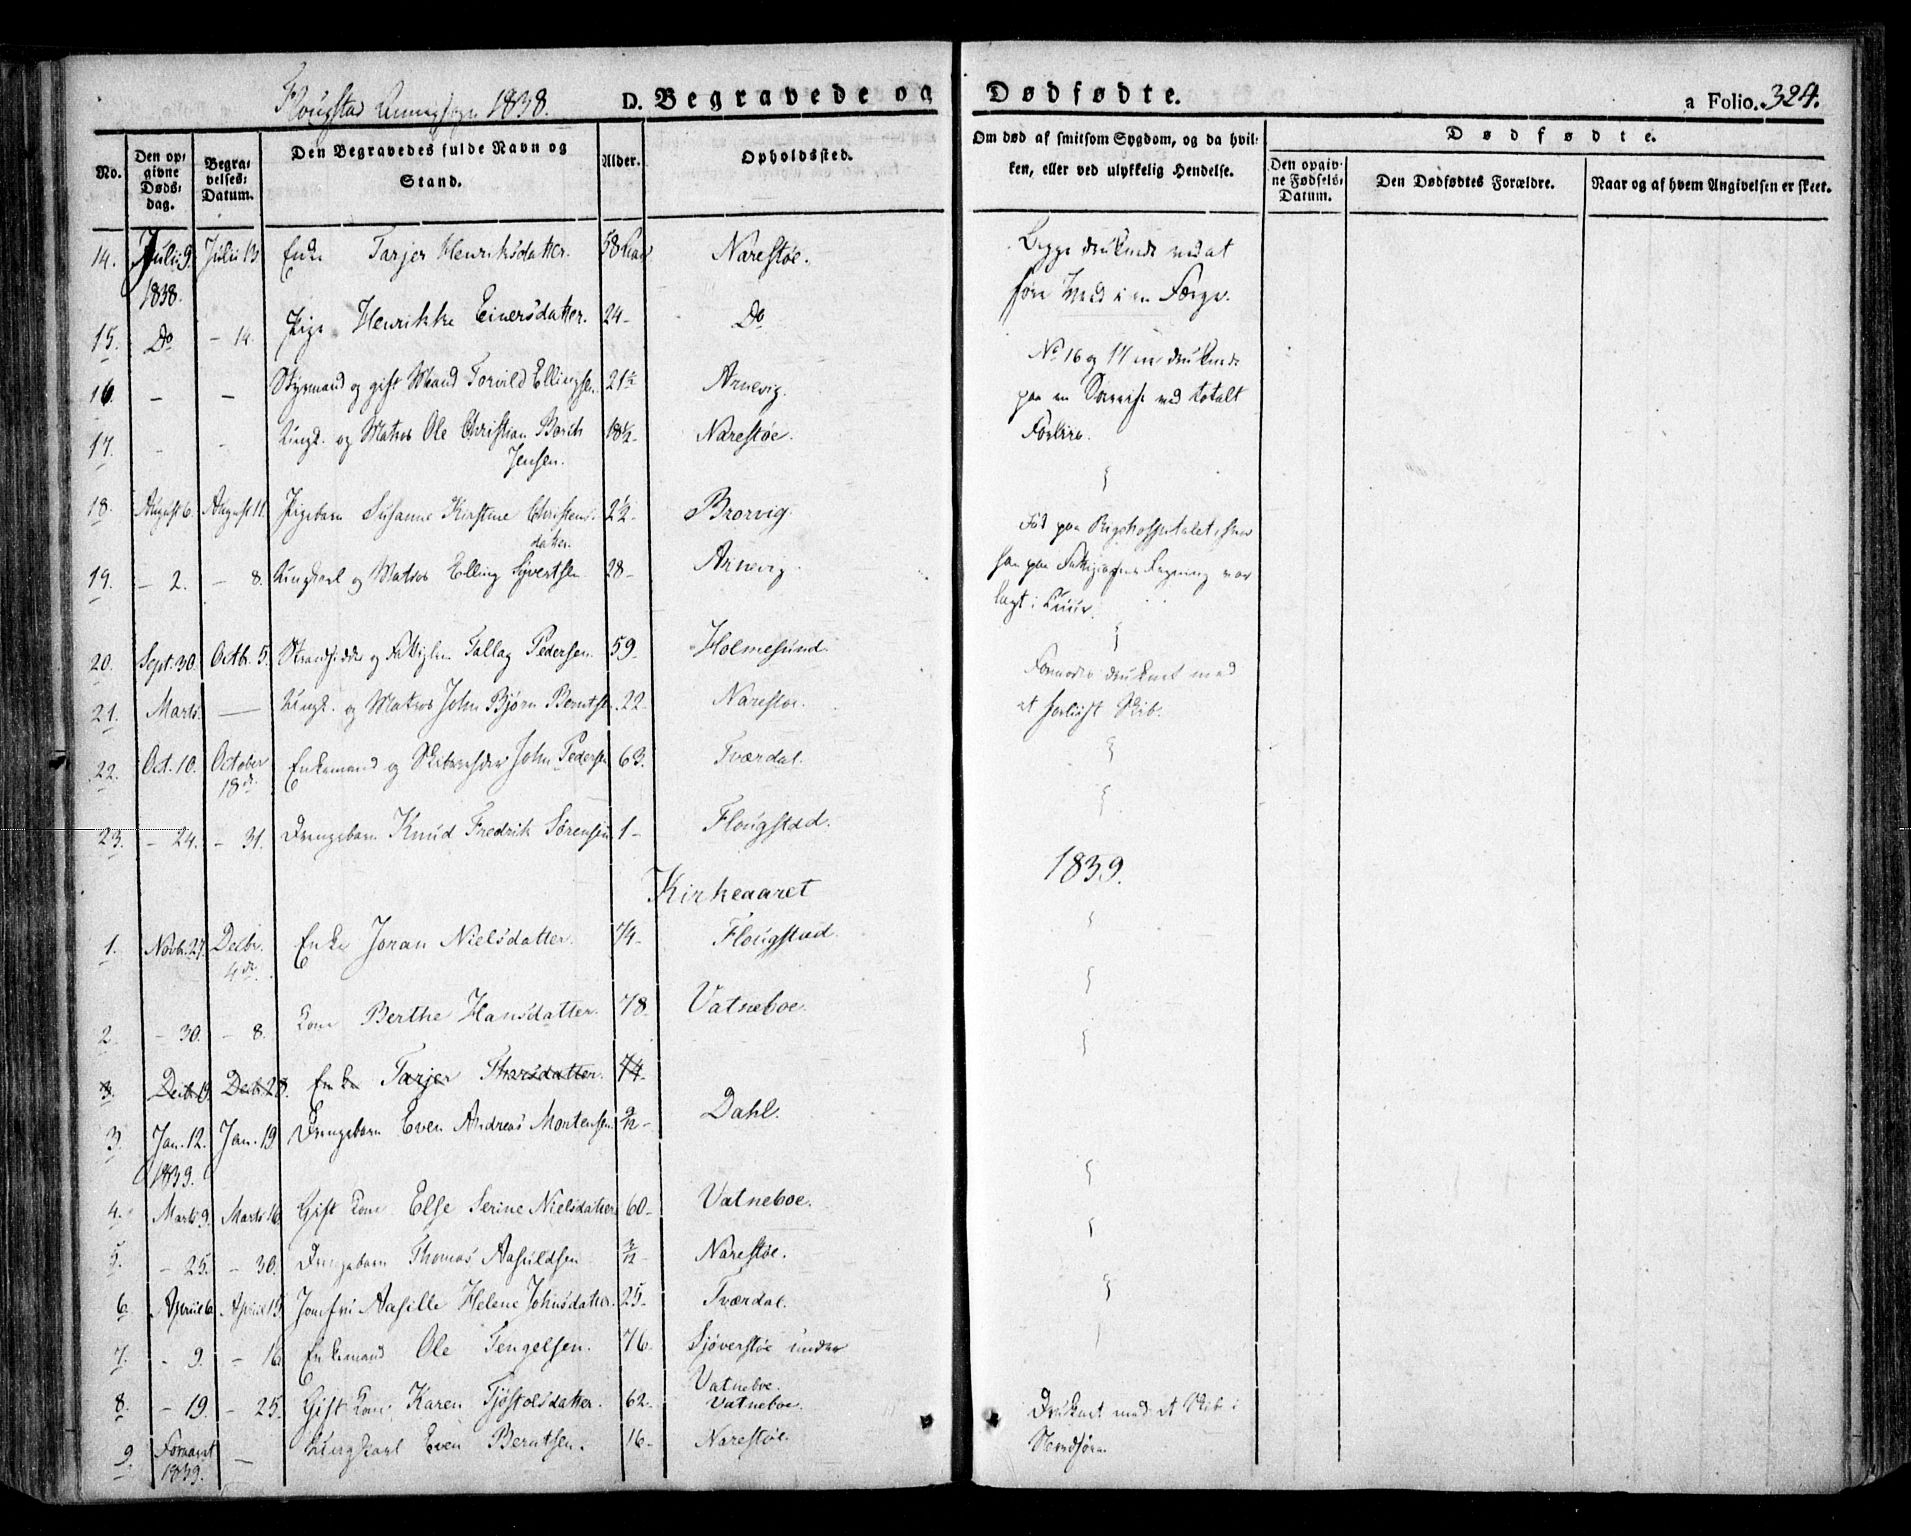 Flougstad Annexsogn 1838. D. Begravede og Dødfødte. a Folio. 324.
No. Den opgivne Dødsdag. Begravelses-Datum. Den Begravedes fulde Navn og Stand. Alder. Opholdssted. Om død af smitsom Sygdom, og da hvilken, eller ved ulykkelig Hendelse. Dødfødte.
Den opgivne Fødsels-Datum. Den Dødfødtes Forældre. Naar og af hvem Angivelsen er skeet.
14. Juli 9. 1838. Juli 13 Enke Tarjer Henriksdatter. 58 Narestøe. Begge druknede ved at
15. Do - 14. Pige Henrikke Einersdatter. 24- Do føre i en Færge.
16. - - Styrmand og gift Mand Torvild Ellingsen. 21½ Arnevig. No 16 og 17 ere druknede
paa en med totalt
17. - - Ungk. og Matros Ole Christian Borch Jensen. 18½- Narestøe. Forliis.
18. August 6. August 11. Pigebarn Susanne Kirstine Christensdatter. 2½- Brorvig.
19. - 2. - 8. Ungkarl og Matros Elling Syvertsen 28- Arnevig. Død paa Rigshospitalet, hvor
han paa Regning var
lagt i Cuur.
20. Sept. 30. Octbr. 5. Strandsidder og Fattiglem Tallag Pedersen. 59- Holmesund.
21. Marts. — Ungk. og Matros John Bjørn Berntsen. 22- Narestøe. Formodes druknet med
et forliist Skib.
22. Oct. 10. October 18de Enkemand og John Pedersen 63. Tværdal.
23. - 24. - 31. Drengebarn Knud Fredrik Sørensen 1- Flougstad.
Kirkeaaret 1839.
1. Novbr. 27. Decbr. 4de Enke Joran Nielsdatter. 74- Flougstad.
2. - 30. - 8. Kone Berthe Hansdatter. 78. Vatneboe.
3. Decb. 19. Decb. 28. Enke Tarjer Thorsdatter. 74-
3. Jan. 12. 1839. Jan. 19 Drengebarn Even Andreas Mortensen 9/12- Dahl.
4. Marts 9. Marts 16. Gift Kone Else Serine Nielsdatter 60- Vatneboe.
5. - 25. - 30. Drengebarn Thomas Aasuldsen 3/12- Narestøe.
6. April 6. April 15 Jomfru Aasille Helene Johnsdatter. 25- Tværdal.
7. - 9. - 16 Enkemand Ole Tengelsen. 76- Sjøverstøe under Vatneboe.
8. - 19. - 25. Gift Kone Karen Tjøstolsdatter. 62- Vatneboe.
9. Foraaret 1839. — Ungkarl Even Berntsen. 16- Narestøe. Druknet med et Skib i
Nordsøen.